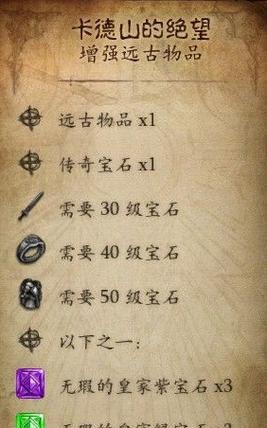 卡德山的绝望
增强远古物品
远古物品 x1
传奇宝石 x1
需要 30 级宝石
需要 40 级宝石
需要 50 级宝石
以下之一：
无瑕的皇家紫宝石 x3